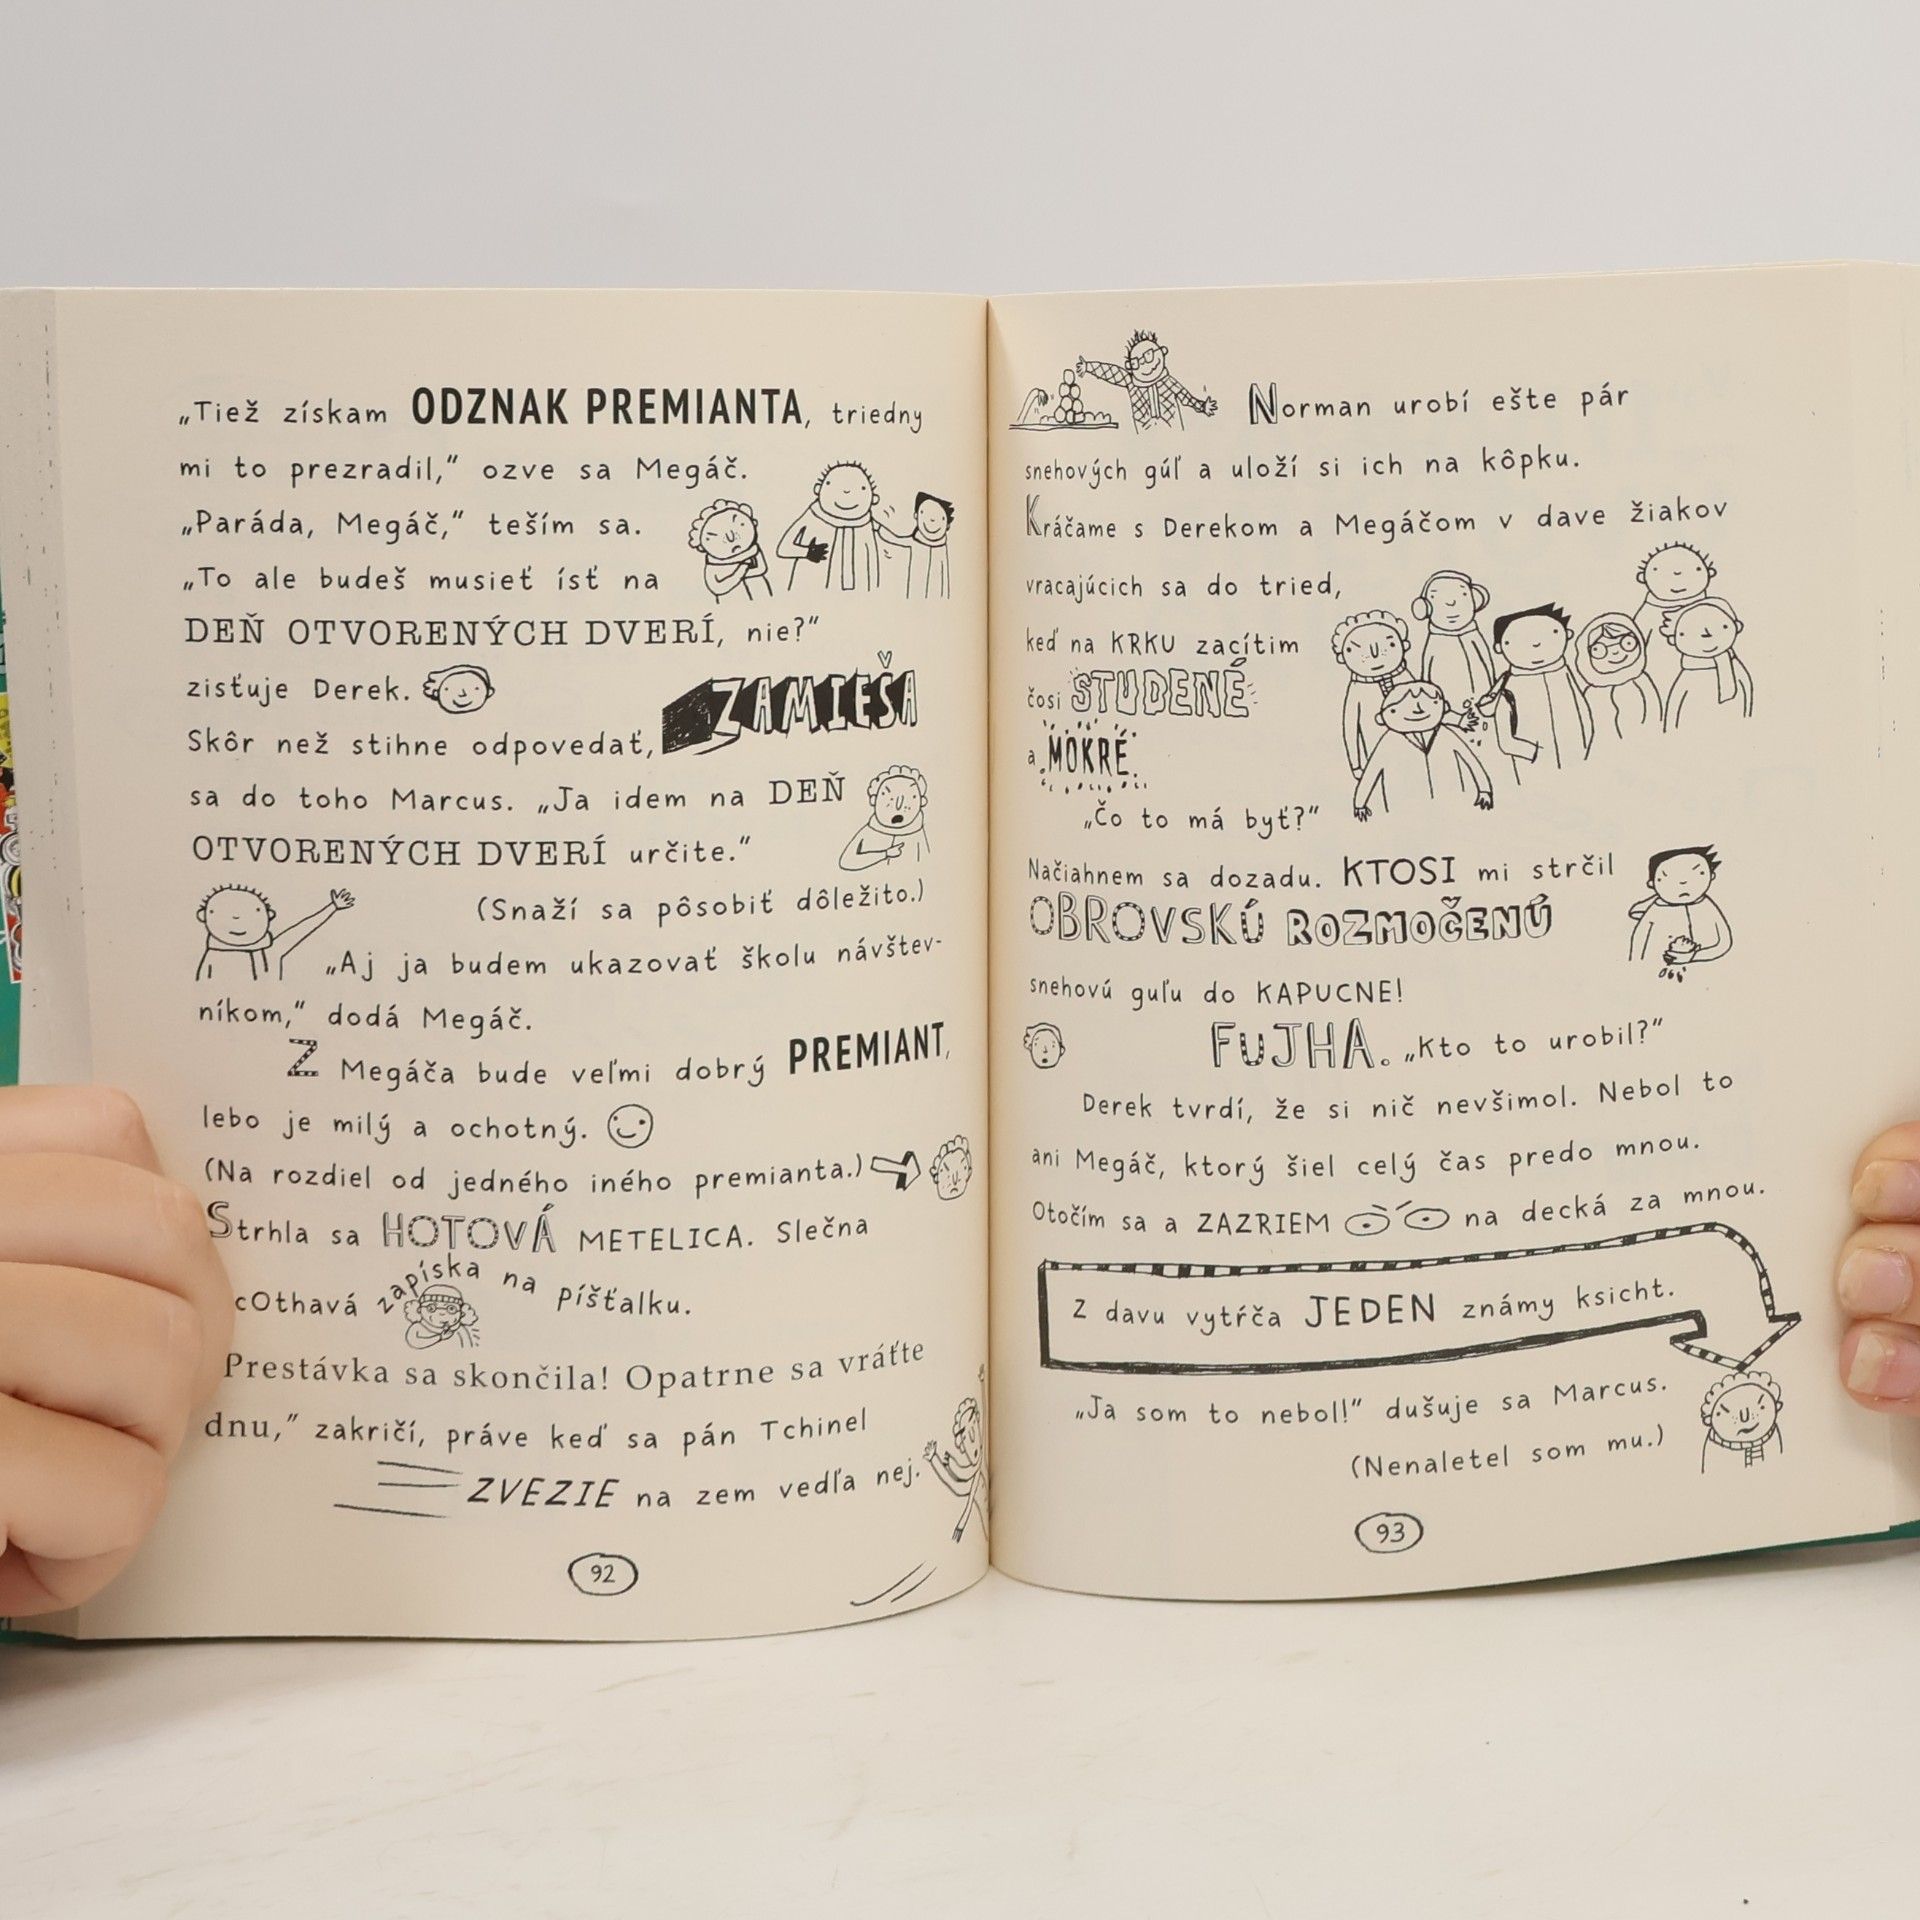 „Tiež získam ODZNAK PREMIANTA, triedny
mi to prezradil,“ ozve sa Megáč.
„Paráda, Megáč,“ teším sa.
„To ale budeš musieť ísť na
DEŇ OTVORENÝCH DVERÍ, nie?“
zisťuje Derek.
Skôr než stihne odpovedať, ZAMIEŠA
sa do toho Marcus. „Ja idem na DEŇ
OTVORENÝCH DVERÍ určite.“
(Snaží sa pôsobiť dôležito.)
„Aj ja budem ukazovať školu návštev-
níkom,“ dodá Megáč.
Z Megáča bude veľmi dobrý PREMIANT,
lebo je milý a ochotný.
(Na rozdiel od jedného iného premianta.)
Strhla sa HOTOVÁ METELICA. Slečna
cOthavá zapíska na píšťalku.
Prestávka sa skončila! Opatrne sa vráťte
dnu,“ zakričí, práve keď sa pán Tchinel
ZVEZIE na zem vedľa nej.
92
Norman urobí ešte pár
snehových gúľ a uloží si ich na kôpku.
Kráčame s Derekom a Megáčom v dave žiakov
vracajúcich sa do tried,
keď na KRKU zacítim
čosi STUDENÉ
a MOKRÉ.
„Čo to má byť?“
Načiahnem sa dozadu. KTOSI mi strčil
OBROVSKÚ ROZMOČENÚ
snehovú guľu do KAPUCNE!
FUJHA. „Kto to urobil?“
Derek tvrdí, že si nič nevšimol. Nebol to
ani Megáč, ktorý šiel celý čas predo mnou.
Otočím sa a ZAZRIEM na decká za mnou.
Z davu vytŕča JEDEN známy ksicht.
„Ja som to nebol!“ dušuje sa Marcus.
(Nenaletel som mu.)
93